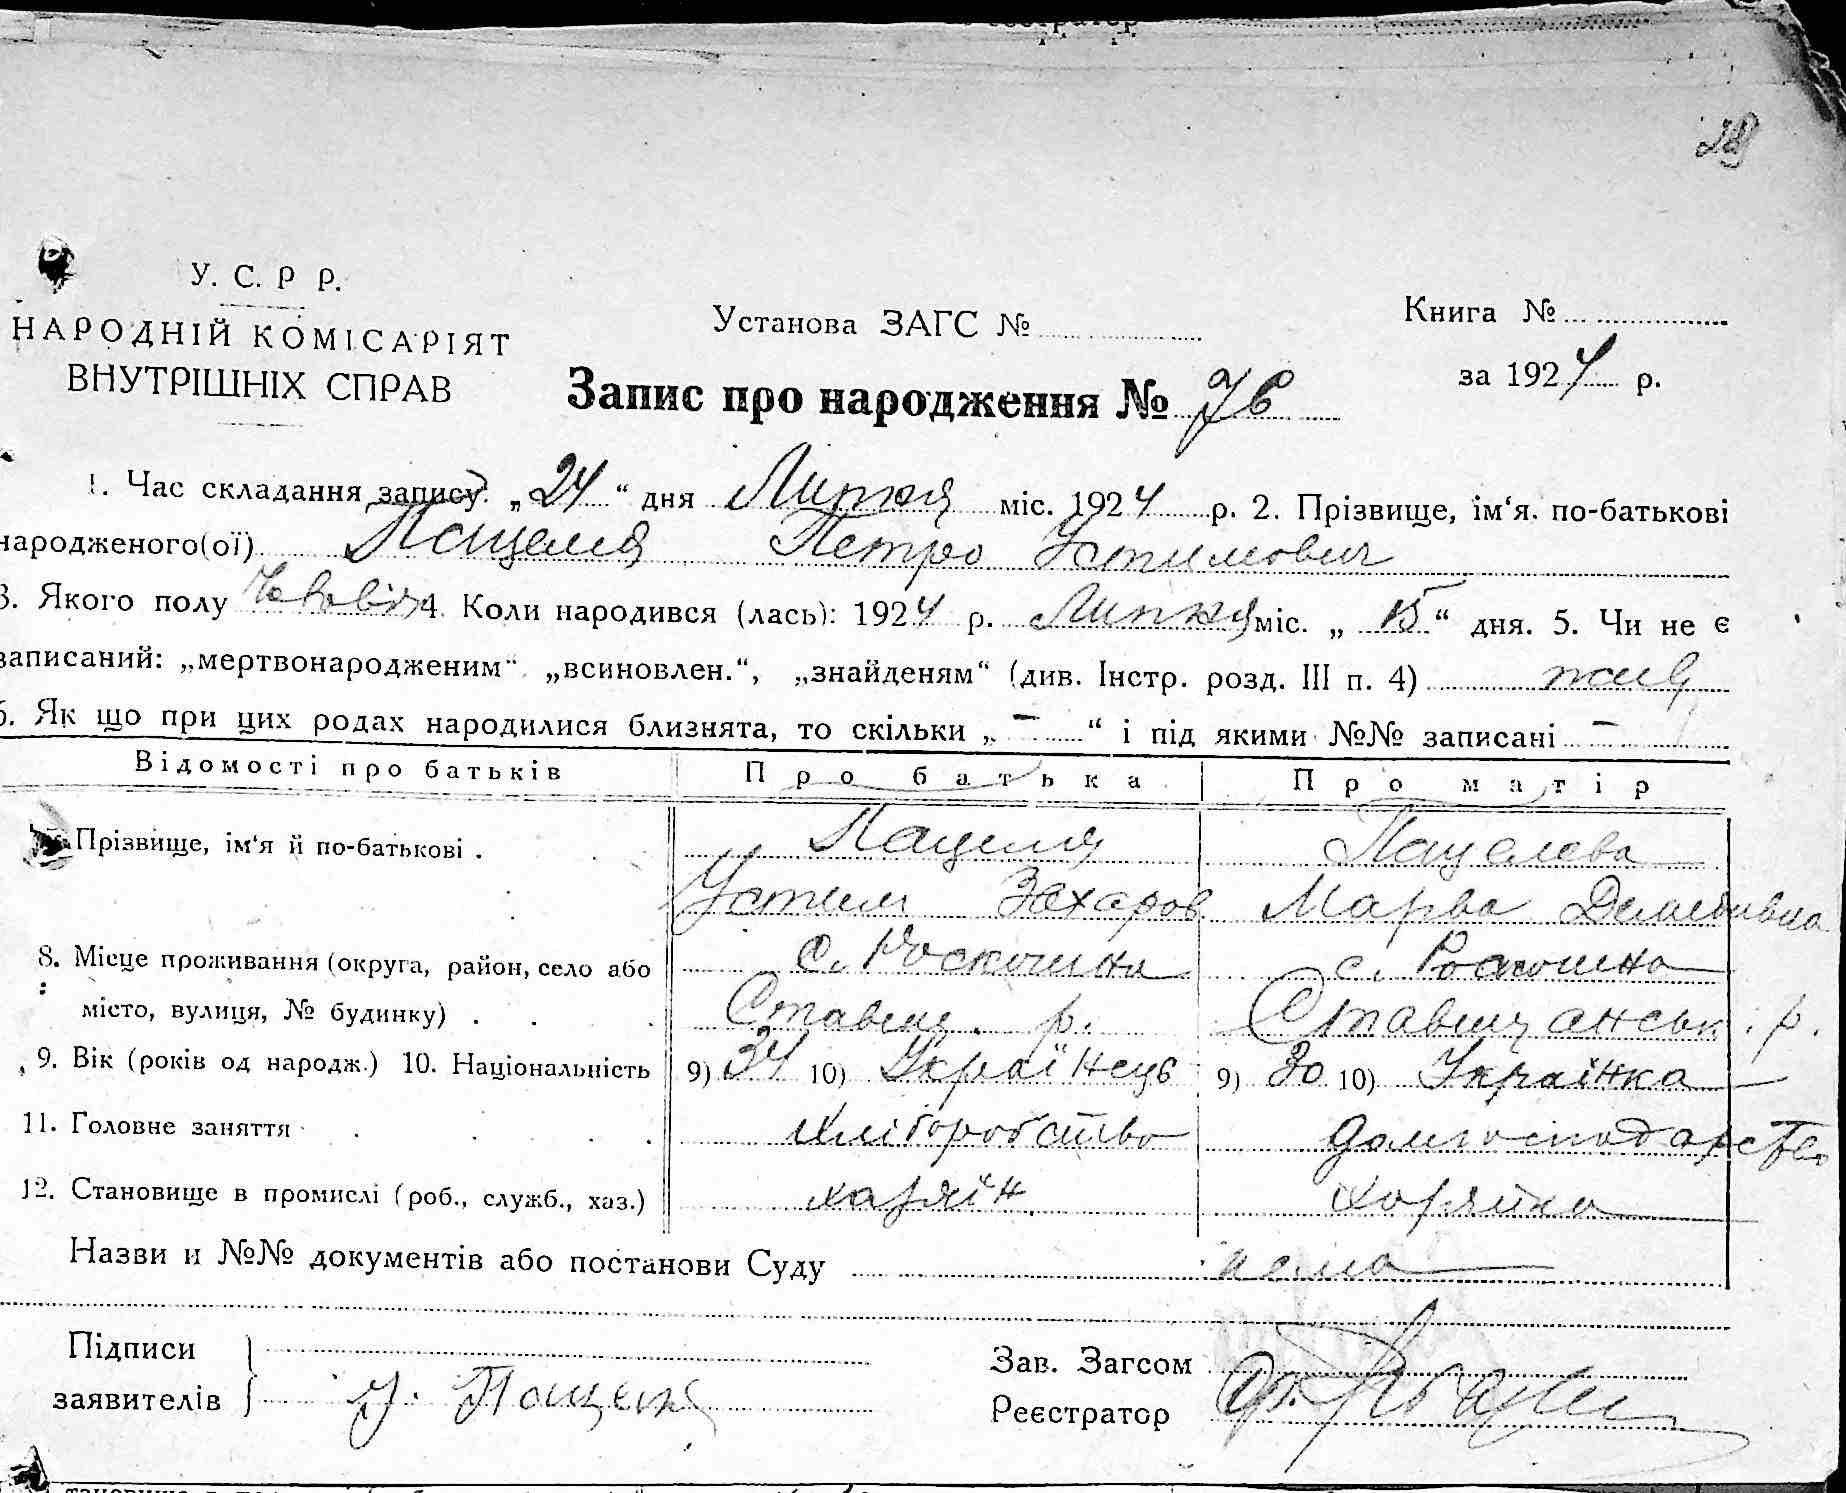 28
У. С. Р Р.
НАРОДНІЙ КОМІСАРІЯТ
ВНУТРІШНІХ СПРАВ
Установа ЗАГС №
Книга №
за 1924 р.
Запис про народження № 76
1. Час складання запису: „24“ дня Липня міс. 1924 р. 2. Прізвище, ім‘я. по-батькові
народженого(ої) Пацеля Петро Устимович
3. Якого полу 4. Коли народився (лась): 1924 р. Липня міс. „15“ дня. 5. Чи не є
записаний: „мертвонародженим“ „всиновлен.“, „знайденям“ (див. Інстр. розд. III п. 4) жив
6. Як що при цих родах народилися близнята, то скільки „ — “ і під якими №№ записані —
Відомості про батьків Про батька Про матір
Прізвище, ім‘я й по-батькові . Пацеля Пацелева
Устим Захаров Марва
8. Місце проживання (округа, район, село або с. Роскошна с. Роскошна
місто, вулиця, № будинку) . . . Ставищ. р. Ставищанськ. р.
9. Вік (років од народж.) 10. Національність 9) 34 10) Українець 9) 30 10) Українка
11. Головне заняття . . . . хліборобство домгосподарство
12. Становище в промислі (роб., служб., хаз.) хазяїн хазяйка
Назви и №№ документів або постанови Суду нема
Підписи
заявителів У. Пацеля
Зав. Загсом
Реєстратор